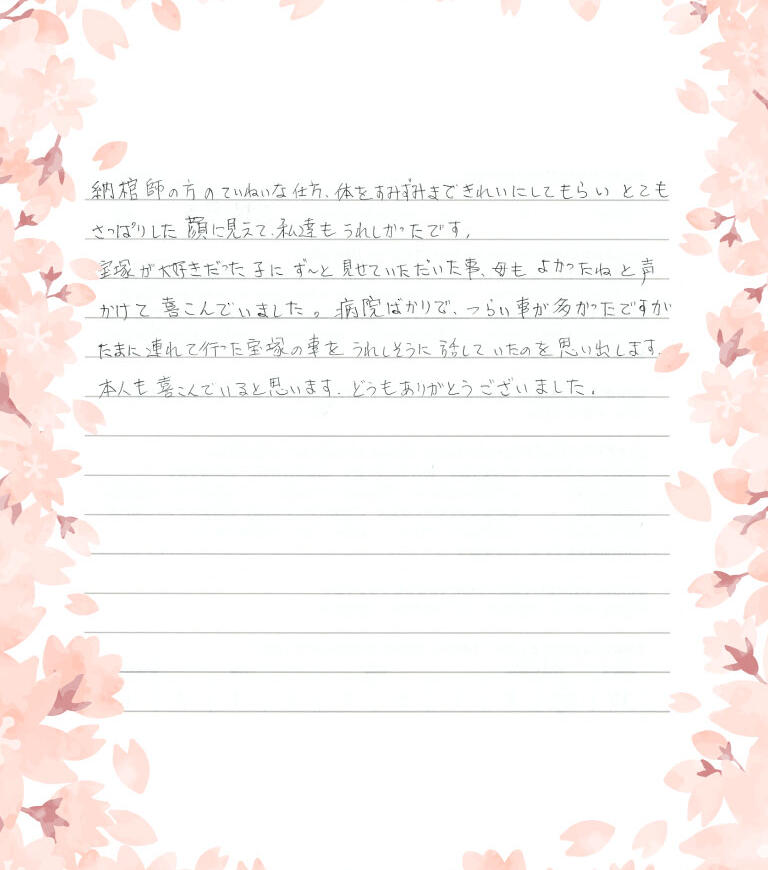 納棺師の方のていねいな仕方、体をすみずみまできれいにしてもらい とても
さっぱりした 顔に見えて、私達も うれしかったです。
宝塚が大好きだった 子に ず〜と 見せていただいた事、母も よかったねと声
かけて 喜こんでいました。病院ばかりで、つらい事が多かったですが
たまに 連れて行った 宝塚の事を うれしそうに 話していたのを 思い出します。
本人も 喜こんでいると思います。どうもありがとうございました。